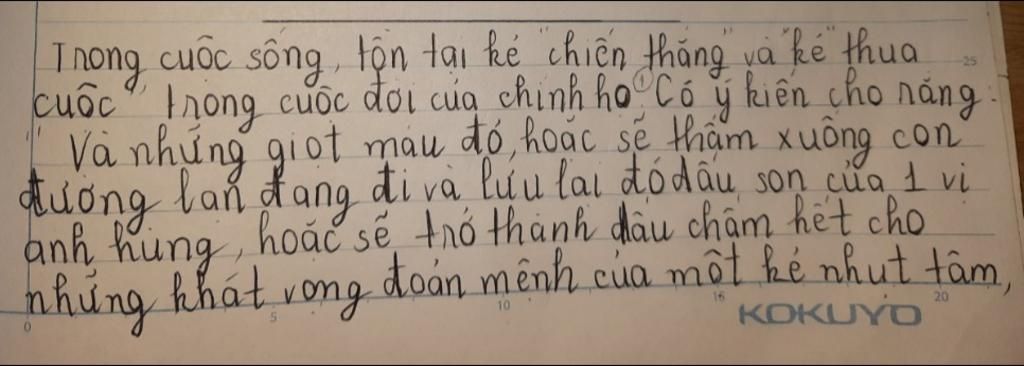 Trong cuộc sống, tồn tại kẻ "chiến thắng" và "kẻ" thua
cuộc", trong cuộc đời của chính họ ① Có ý kiến cho rằng:
"Và những giọt máu đó, hoặc sẽ thấm xuống con
đường lan đang đi và lưu lại đó dấu son của 1 vị
anh hùng, hoặc sẽ trở thành dấu chấm hết cho
những khát vọng đoản mệnh của một kẻ nhụt tâm,
0 5 10 15 20 25
KOKUYO